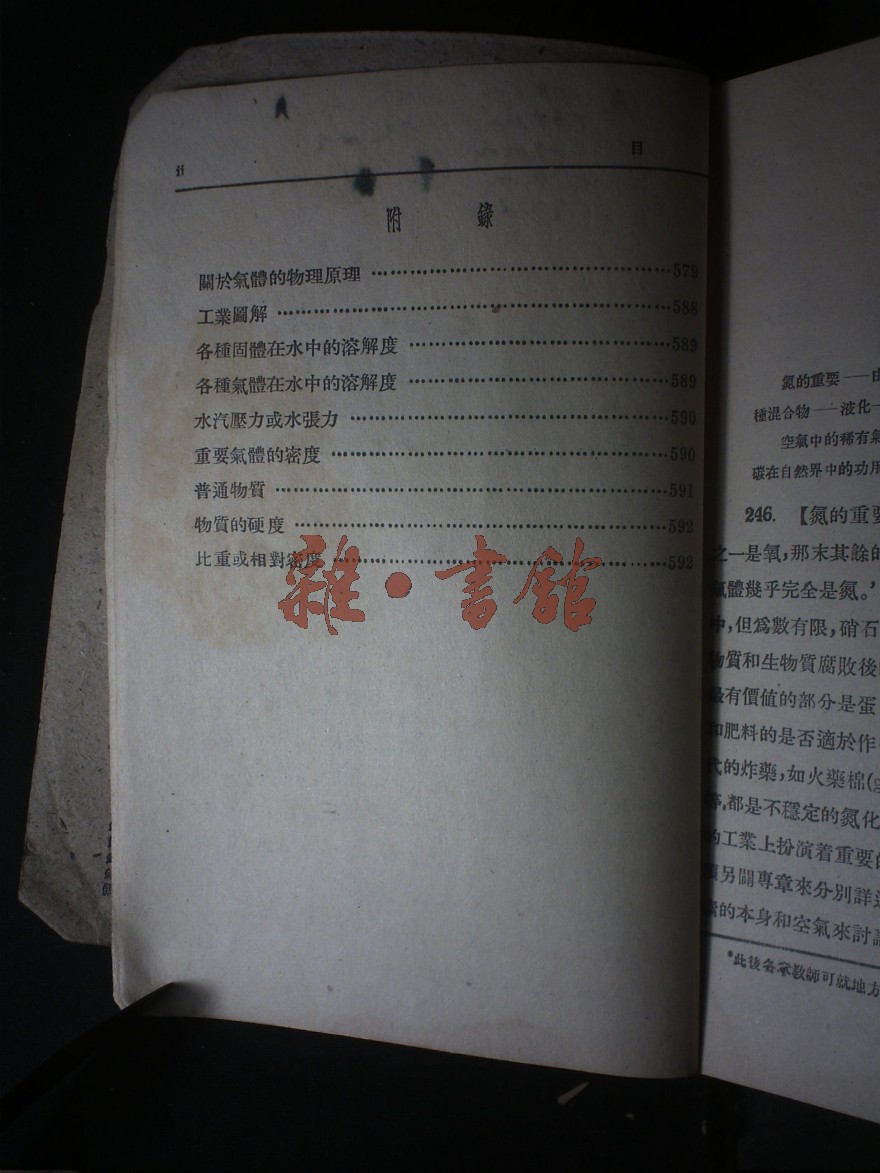 ii
目
附 錄
關於氣體的物理原理 ……579
工業圖解 ……588
各種固體在水中的溶解度 ……589
各種氣體在水中的溶解度 ……589
水汽壓力或水張力 ……590
重要氣體的密度 ……590
普通物質 ……591
物質的硬度 ……592
比重或相對密度 ……592
雜·書館
氮的重要——由
種混合物——液化—
空氣中的稀有氣
碳在自然界中的功用
246. 【氮的重要
之一是氧,那末其餘的
氣體幾乎完全是氮。
中,但爲數有限,硝石
物質和生物質腐敗後
最有價值的部分是蛋
和肥料的是否適於作
代的炸藥,如火藥棉(
等,都是不穩定的氮化
的工業上扮演着重要的
另闢專章來分別詳
的本身和空氣來討論
*此後各章教師可就地方